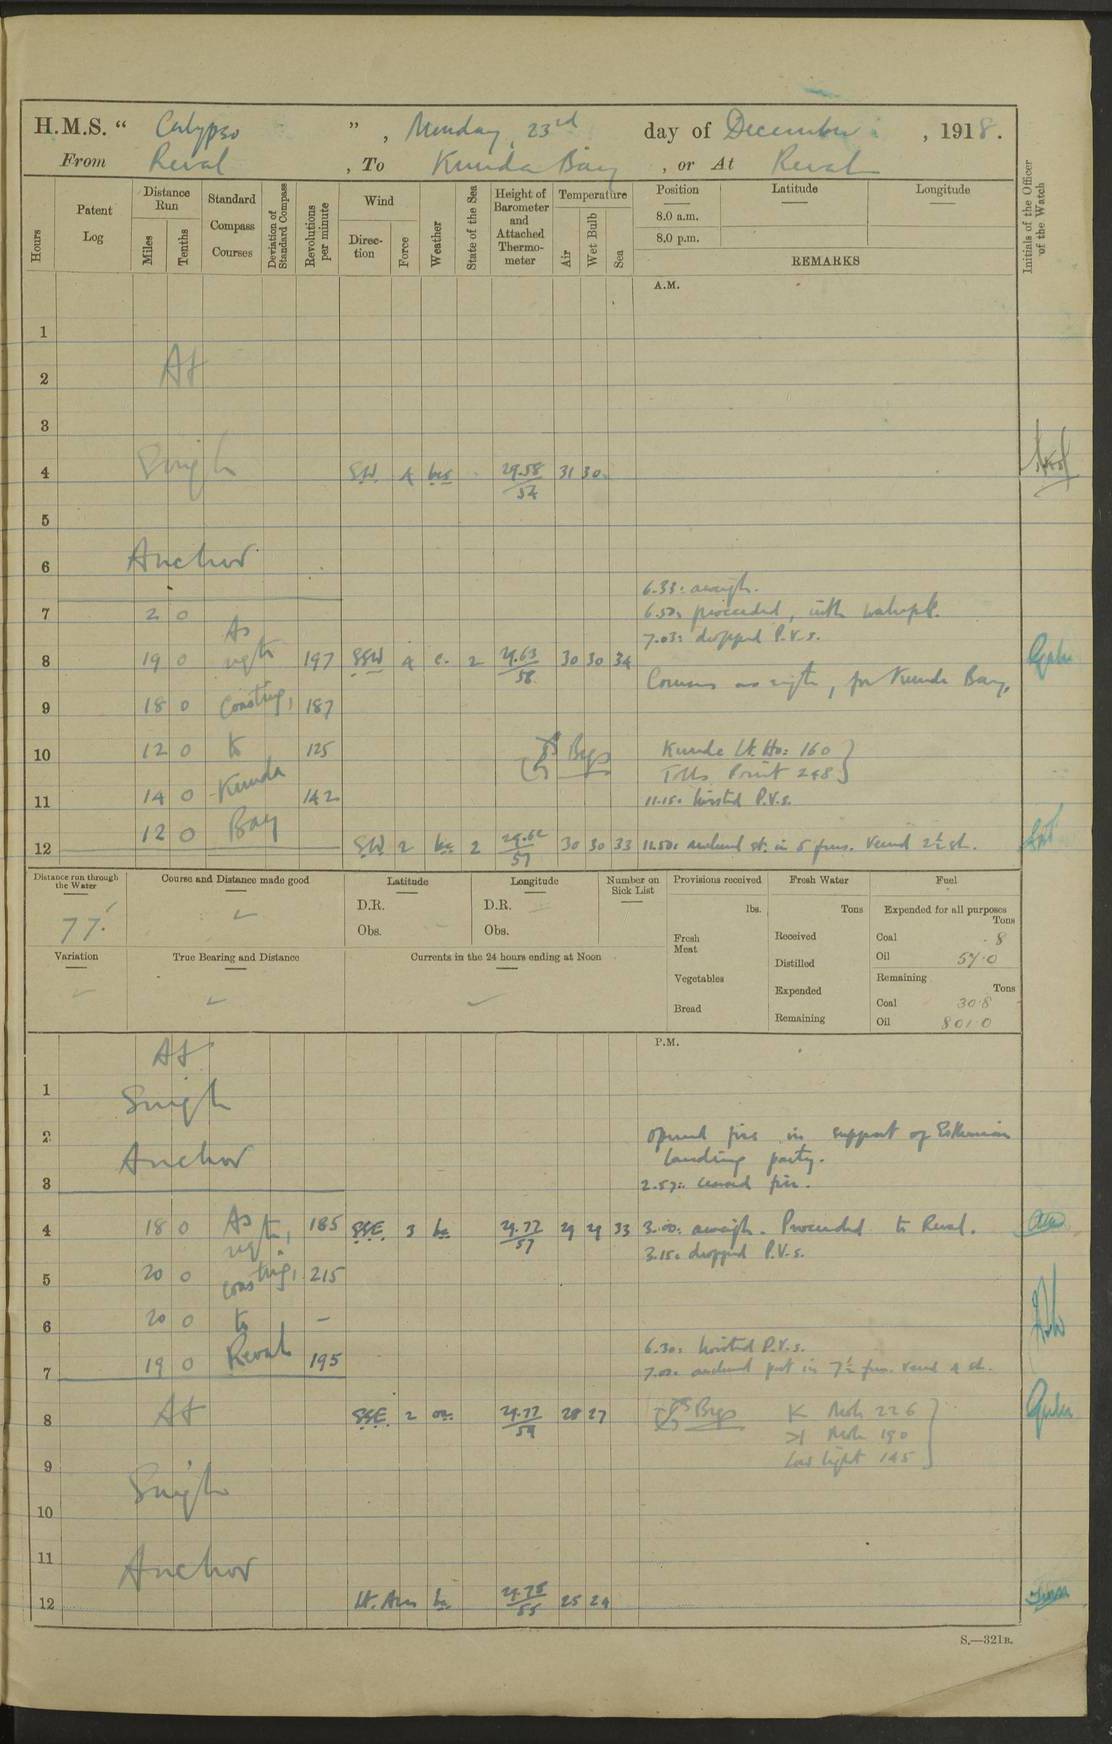 H.M.S. " Calypso " , Monday, 23rd day of December , 1918.
From Reval , To Kunda Bay , or At Reval
Hours
Patent Log
Distance Run
Miles
Tenths
Standard Compass Courses
Deviation of Standard Compass
Revolutions per minute
Wind
Direction
Force
Weather
State of the Sea
Height of Barometer and Attached Thermometer
Temperature
Air
Wet Bulb
Sea
Position
Latitude
Longitude
8.0 a.m.
8.0 p.m.
REMARKS
Initials of the Officer of the Watch
A.M.
1
At
2
3
4 Single SW 4 bcs 29.58/54 31 30
5
6 Anchor
6.33: aweigh.
7 2 0 6.50: proceeded, with
As 7.03: dropped P.V.s.
8 19 0 reqte 197 SSW 4 c. 2 29.63/58 30 30 34
Courses as reqte, for Kunda Bay,
9 18 0 coasting, 187
10 12 0 to 125 Bgs Kunda Lt. Ho: 160
Tolls Point 248
11 14 0 Kunda 142 11.15: hoisted P.V.s.
12 12 0 Bay SW 2 bc 2 29.62/57 30 30 33 11.50: anchored st. in 5 fms. Veered 2½ sh.
Distance run through the Water
Course and Distance made good
Latitude
Longitude
Number on Sick List
Provisions received
Fresh Water
Fuel
77.
D.R.
D.R.
Obs.
Obs.
lbs.
Tons
Expended for all purposes
Tons
Fresh Meat
Received
Coal .8
Oil 57.0
Variation
True Bearing and Distance
Currents in the 24 hours ending at Noon
Distilled
Remaining
Vegetables
Tons
Expended
Coal 30.8
Bread
Remaining
Oil 801.0
P.M.
At
1
Single
2 opened fire in support of Esthonian
Anchor landing party.
3 2.57: ceased fire.
4 18 0 As 185 SSE 3 bc 29.77/57 29 29 33 3.00: aweigh. Proceeded to Reval.
reqte, 3.15: dropped P.V.s.
5 20 0 coasting, 215
6 20 0 to –
6.30: hoisted P.V.s.
7 19 0 Reval 195 7.00: anchored port in 7½ fms. veered 4 sh.
8 At SSE 2 29.77/54 28 27 Bgs K Mole 226
Mole 190
9 Low light 145
Single
10
11
Anchor
12 Lt. Airs bc 29.78/55 25 24
S.—321B.